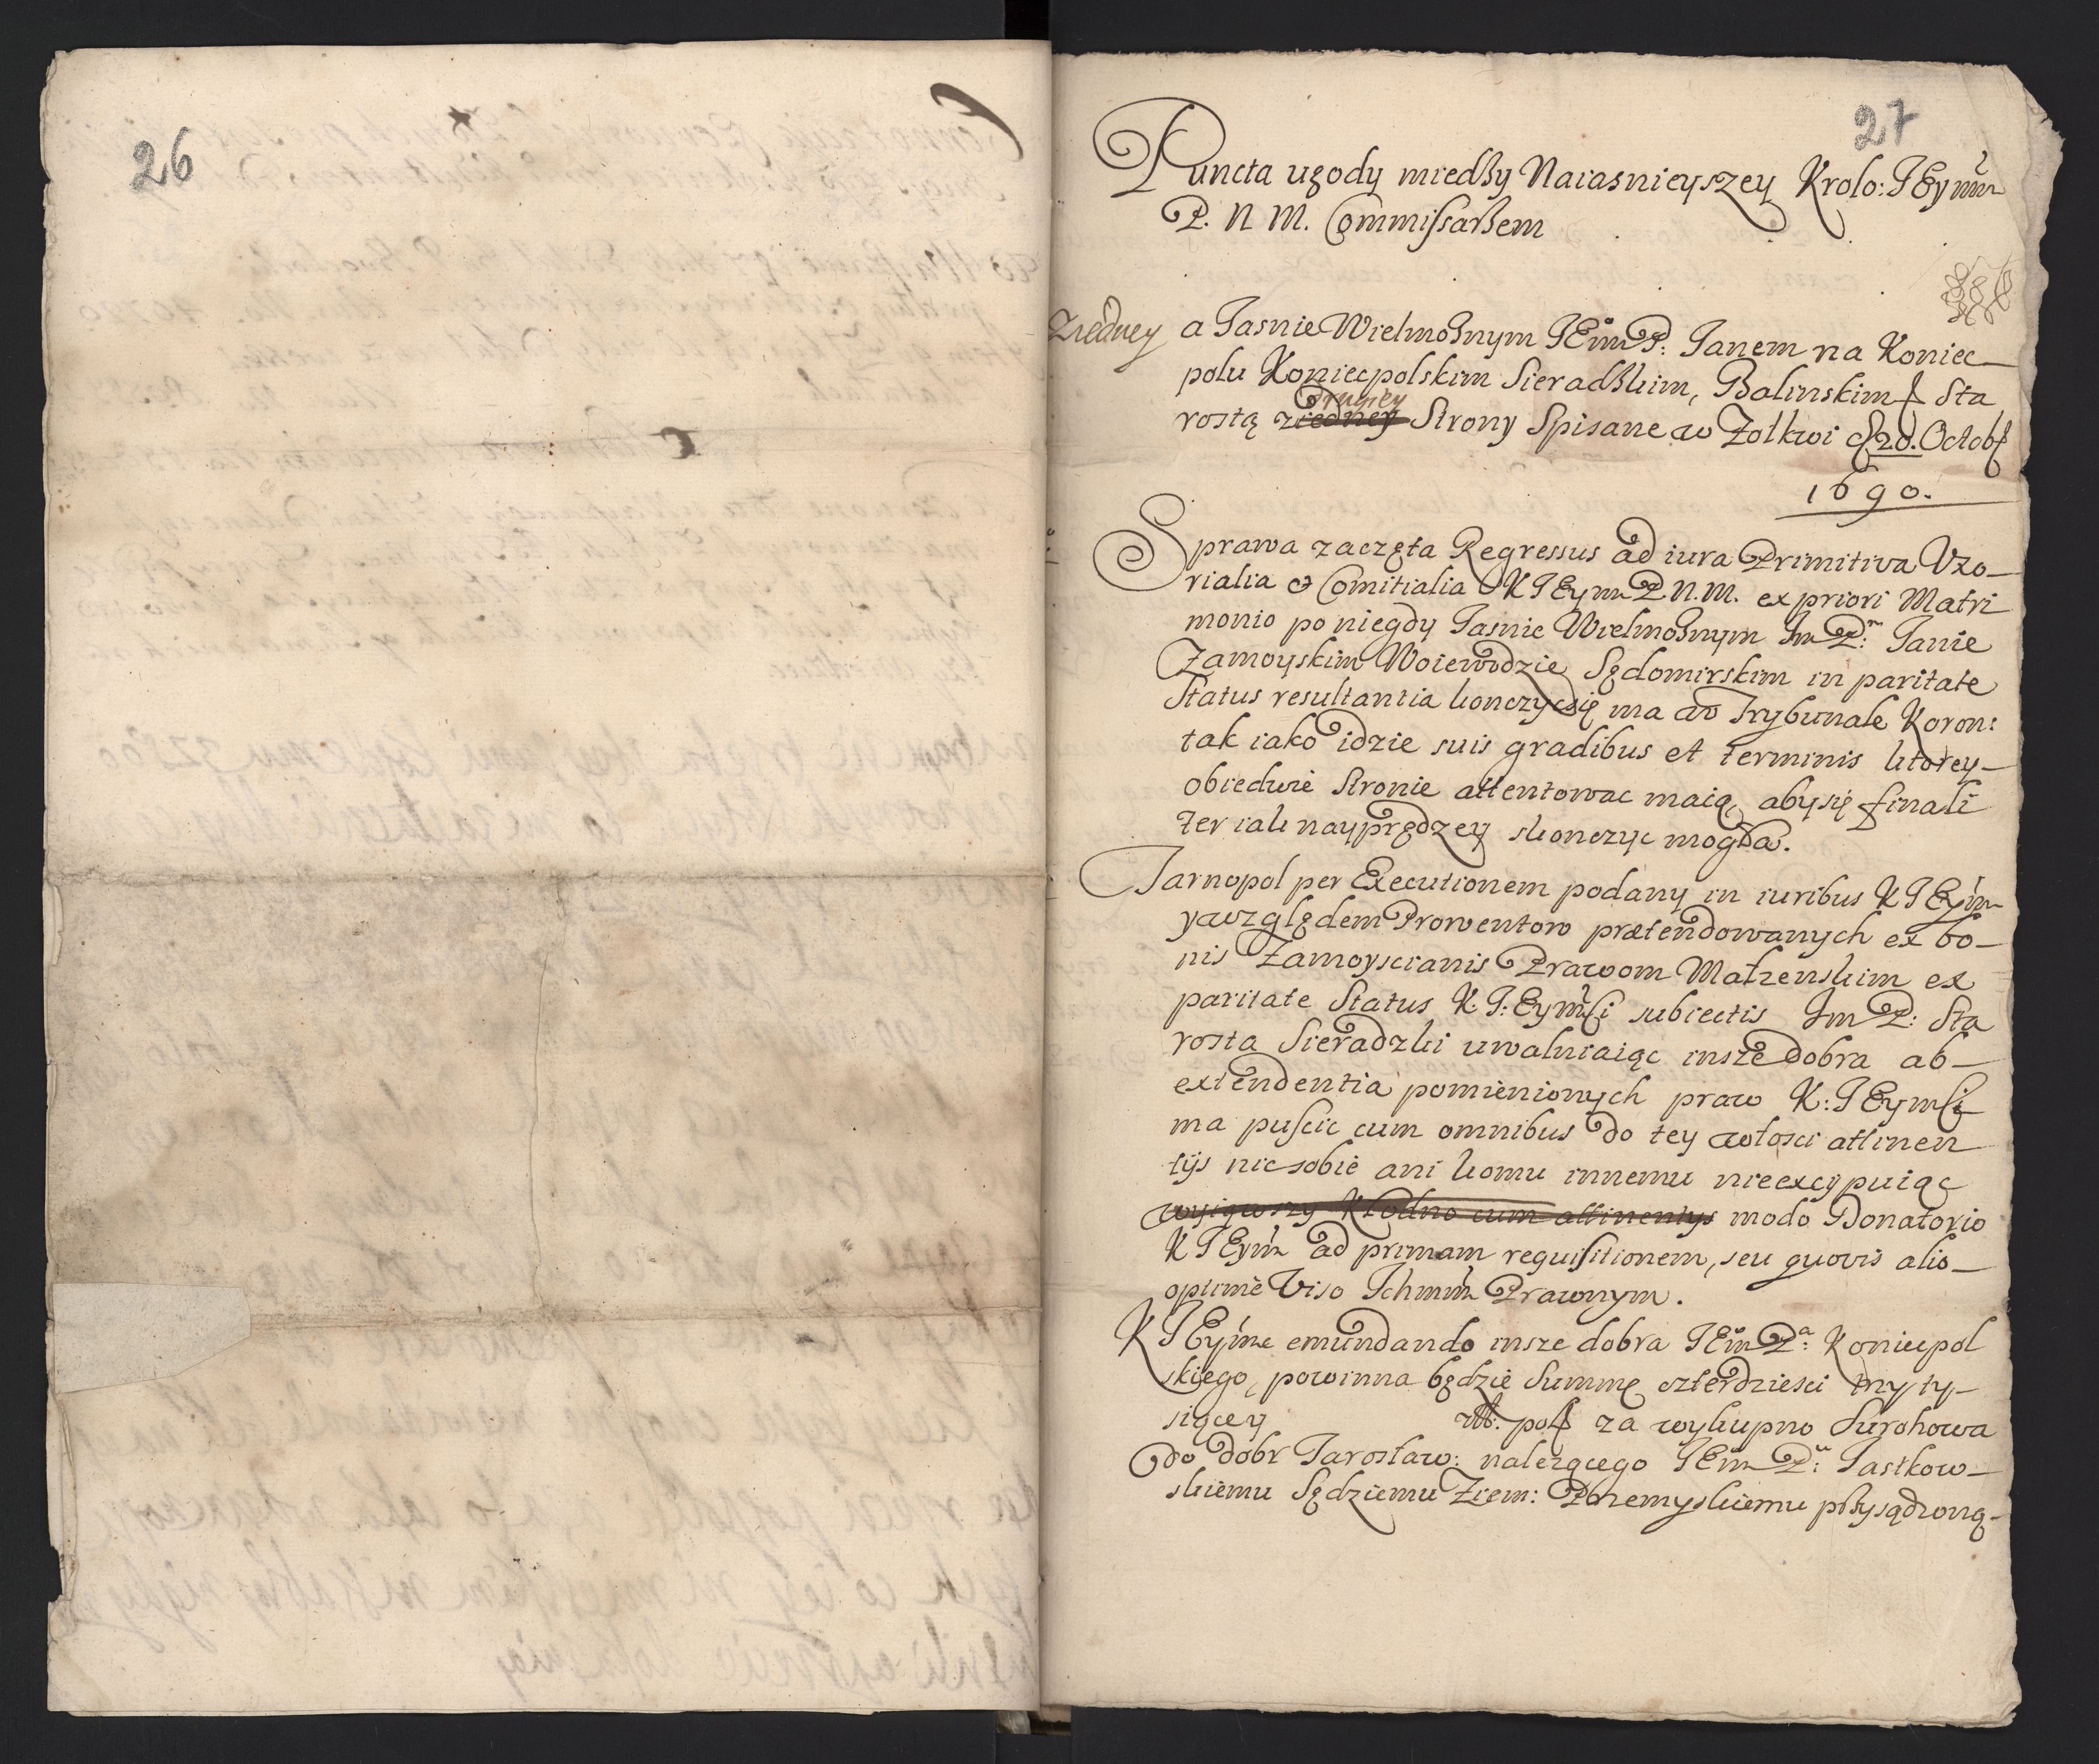 26
27
Puncta ugody miedßy Naiasnieyszey Krolo: JEymći
P. N M. Commissarßem
zjedney a Jasnie Wielmoßnym JEmćP: Janem na Koniec—
polu Koniecpolskim Sieradßkim, Balinskim Sta
drugiey
rostą ziedney Strony Spisane w Zołkwi d 20. Octobr
1690.
Sprawa zaczęta Regressus ad iura Primitiva Vxo—
rialia et Comitialia K JEymći P. N. M. ex priori Matri
monio po niegdy Jasnie Wielmoßnym Im P:n Janie
Zamoyskim Woiewodzie Sędomirskim in paritate
Status resultantia konczyc się ma w Trybunale Koron:
tak iako idzie suis gradibus et terminis ktorey—
obiedwie Stronie attentowac maią, aby się finali
ter iak nayprędzey skonczyc mogła.
Tarnopol per Executionem podany in iuribus K JEymći
y względem Prowentow prætendowanych ex bo—
nis Zamoyscianis Prawom Małzenskim ex
paritate Status K. J: Eymści subiectis Im P: Sta
rosta Sieradzki uwalniaiąc insze dobra ab—
extendentia pomienionych praw K: JEymści
ma puścic cum omnibus do tey włości attinen
tijs nic sobie ani komu innemu nieexcypuiąc
wyiąwszy Kłodno cum attinentys modo Donatorio
K JEymći ad primam requisitionem, seu quovis alio—
optime Viso Ichmći Prawnym.
K JEymć emundando insze dobra JEm P:a Koniecpol
skiego, powinna będzie Summę czterdziesci trzy ty—
sięcy zł: pol za wykupno Surohowa
do dobr Jarosław: nalezącego JEm P:u Jastkow—
skiemu Sędziemu Ziem: Przemyskiemu pßysądzoną—